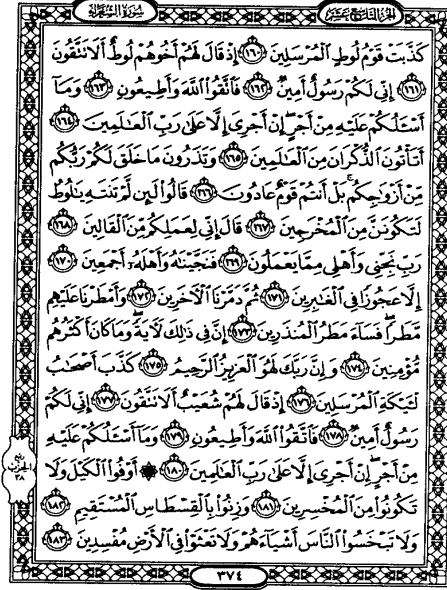 الجزء التاسع عشر سورة الشعراء
كَذَّبَتْ قَوْمُ لُوطٍ الْمُرْسَلِينَ ١٦٠ إِذْ قَالَ لَهُمْ أَخُوهُمْ لُوطٌ أَلَا تَتَّقُونَ
١٦١ إِنِّي لَكُمْ رَسُولٌ أَمِينٌ ١٦٢ فَاتَّقُوا اللَّهَ وَأَطِيعُونِ ١٦٣ وَمَا
أَسْأَلُكُمْ عَلَيْهِ مِنْ أَجْرٍ إِنْ أَجْرِيَ إِلَّا عَلَىٰ رَبِّ الْعَالَمِينَ ١٦٤
أَتَأْتُونَ الذُّكْرَانَ مِنَ الْعَالَمِينَ ١٦٥ وَتَذَرُونَ مَا خَلَقَ لَكُمْ رَبُّكُم
مِّنْ أَزْوَاجِكُم بَلْ أَنتُمْ قَوْمٌ عَادُونَ ١٦٦ قَالُوا لَئِن لَّمْ تَنتَهِ يَا لُوطُ
لَتَكُونَنَّ مِنَ الْمُخْرَجِينَ ١٦٧ قَالَ إِنِّي لِعَمَلِكُم مِّنَ الْقَالِينَ ١٦٨
رَبِّ نَجِّنِي وَأَهْلِي مِمَّا يَعْمَلُونَ ١٦٩ فَنَجَّيْنَاهُ وَأَهْلَهُ أَجْمَعِينَ ١٧٠
إِلَّا عَجُوزًا فِي الْغَابِرِينَ ١٧١ ثُمَّ دَمَّرْنَا الْآخَرِينَ ١٧٢ وَأَمْطَرْنَا عَلَيْهِم
مَّطَرًا فَسَاءَ مَطَرُ الْمُنذَرِينَ ١٧٣ إِنَّ فِي ذَٰلِكَ لَآيَةً وَمَا كَانَ أَكْثَرُهُم
مُّؤْمِنِينَ ١٧٤ وَإِنَّ رَبَّكَ لَهُوَ الْعَزِيزُ الرَّحِيمُ ١٧٥ كَذَّبَ أَصْحَابُ
لْـَٔيْكَةِ الْمُرْسَلِينَ ١٧٦ إِذْ قَالَ لَهُمْ شُعَيْبٌ أَلَا تَتَّقُونَ ١٧٧ إِنِّي لَكُمْ
رَسُولٌ أَمِينٌ ١٧٨ فَاتَّقُوا اللَّهَ وَأَطِيعُونِ ١٧٩ وَمَا أَسْأَلُكُمْ عَلَيْهِ
مِنْ أَجْرٍ إِنْ أَجْرِيَ إِلَّا عَلَىٰ رَبِّ الْعَالَمِينَ ١٨٠ ۞ أَوْفُوا الْكَيْلَ وَلَا
تَكُونُوا مِنَ الْمُخْسِرِينَ ١٨١ وَزِنُوا بِالْقِسْطَاسِ الْمُسْتَقِيمِ ١٨٢
وَلَا تَبْخَسُوا النَّاسَ أَشْيَاءَهُمْ وَلَا تَعْثَوْا فِي الْأَرْضِ مُفْسِدِينَ ١٨٣
ربع
الحزب
٣٨
٣٧٤